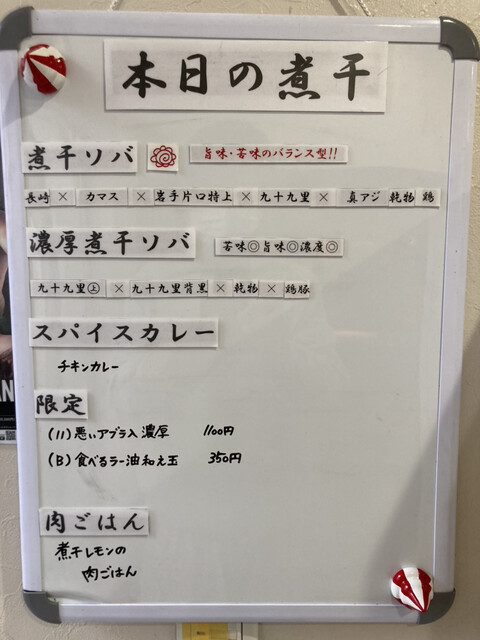 本日の煮干
煮干ソバ 旨味・苦味のバランス型!!
長崎 × カマス × 岩手片口特上 × 九十九里 × 真アジ 乾物 鶏
濃厚煮干ソバ 苦味◎旨味◎濃度◎
九十九里㊤ × 九十九里背黒 × 乾物 × 鶏豚
スパイスカレー
チキンカレー
限定
(11) 悪いアブラ入濃厚 1100円
(B) 食べるラー油和え玉 350円
肉ごはん
煮干レモンの
肉ごはん